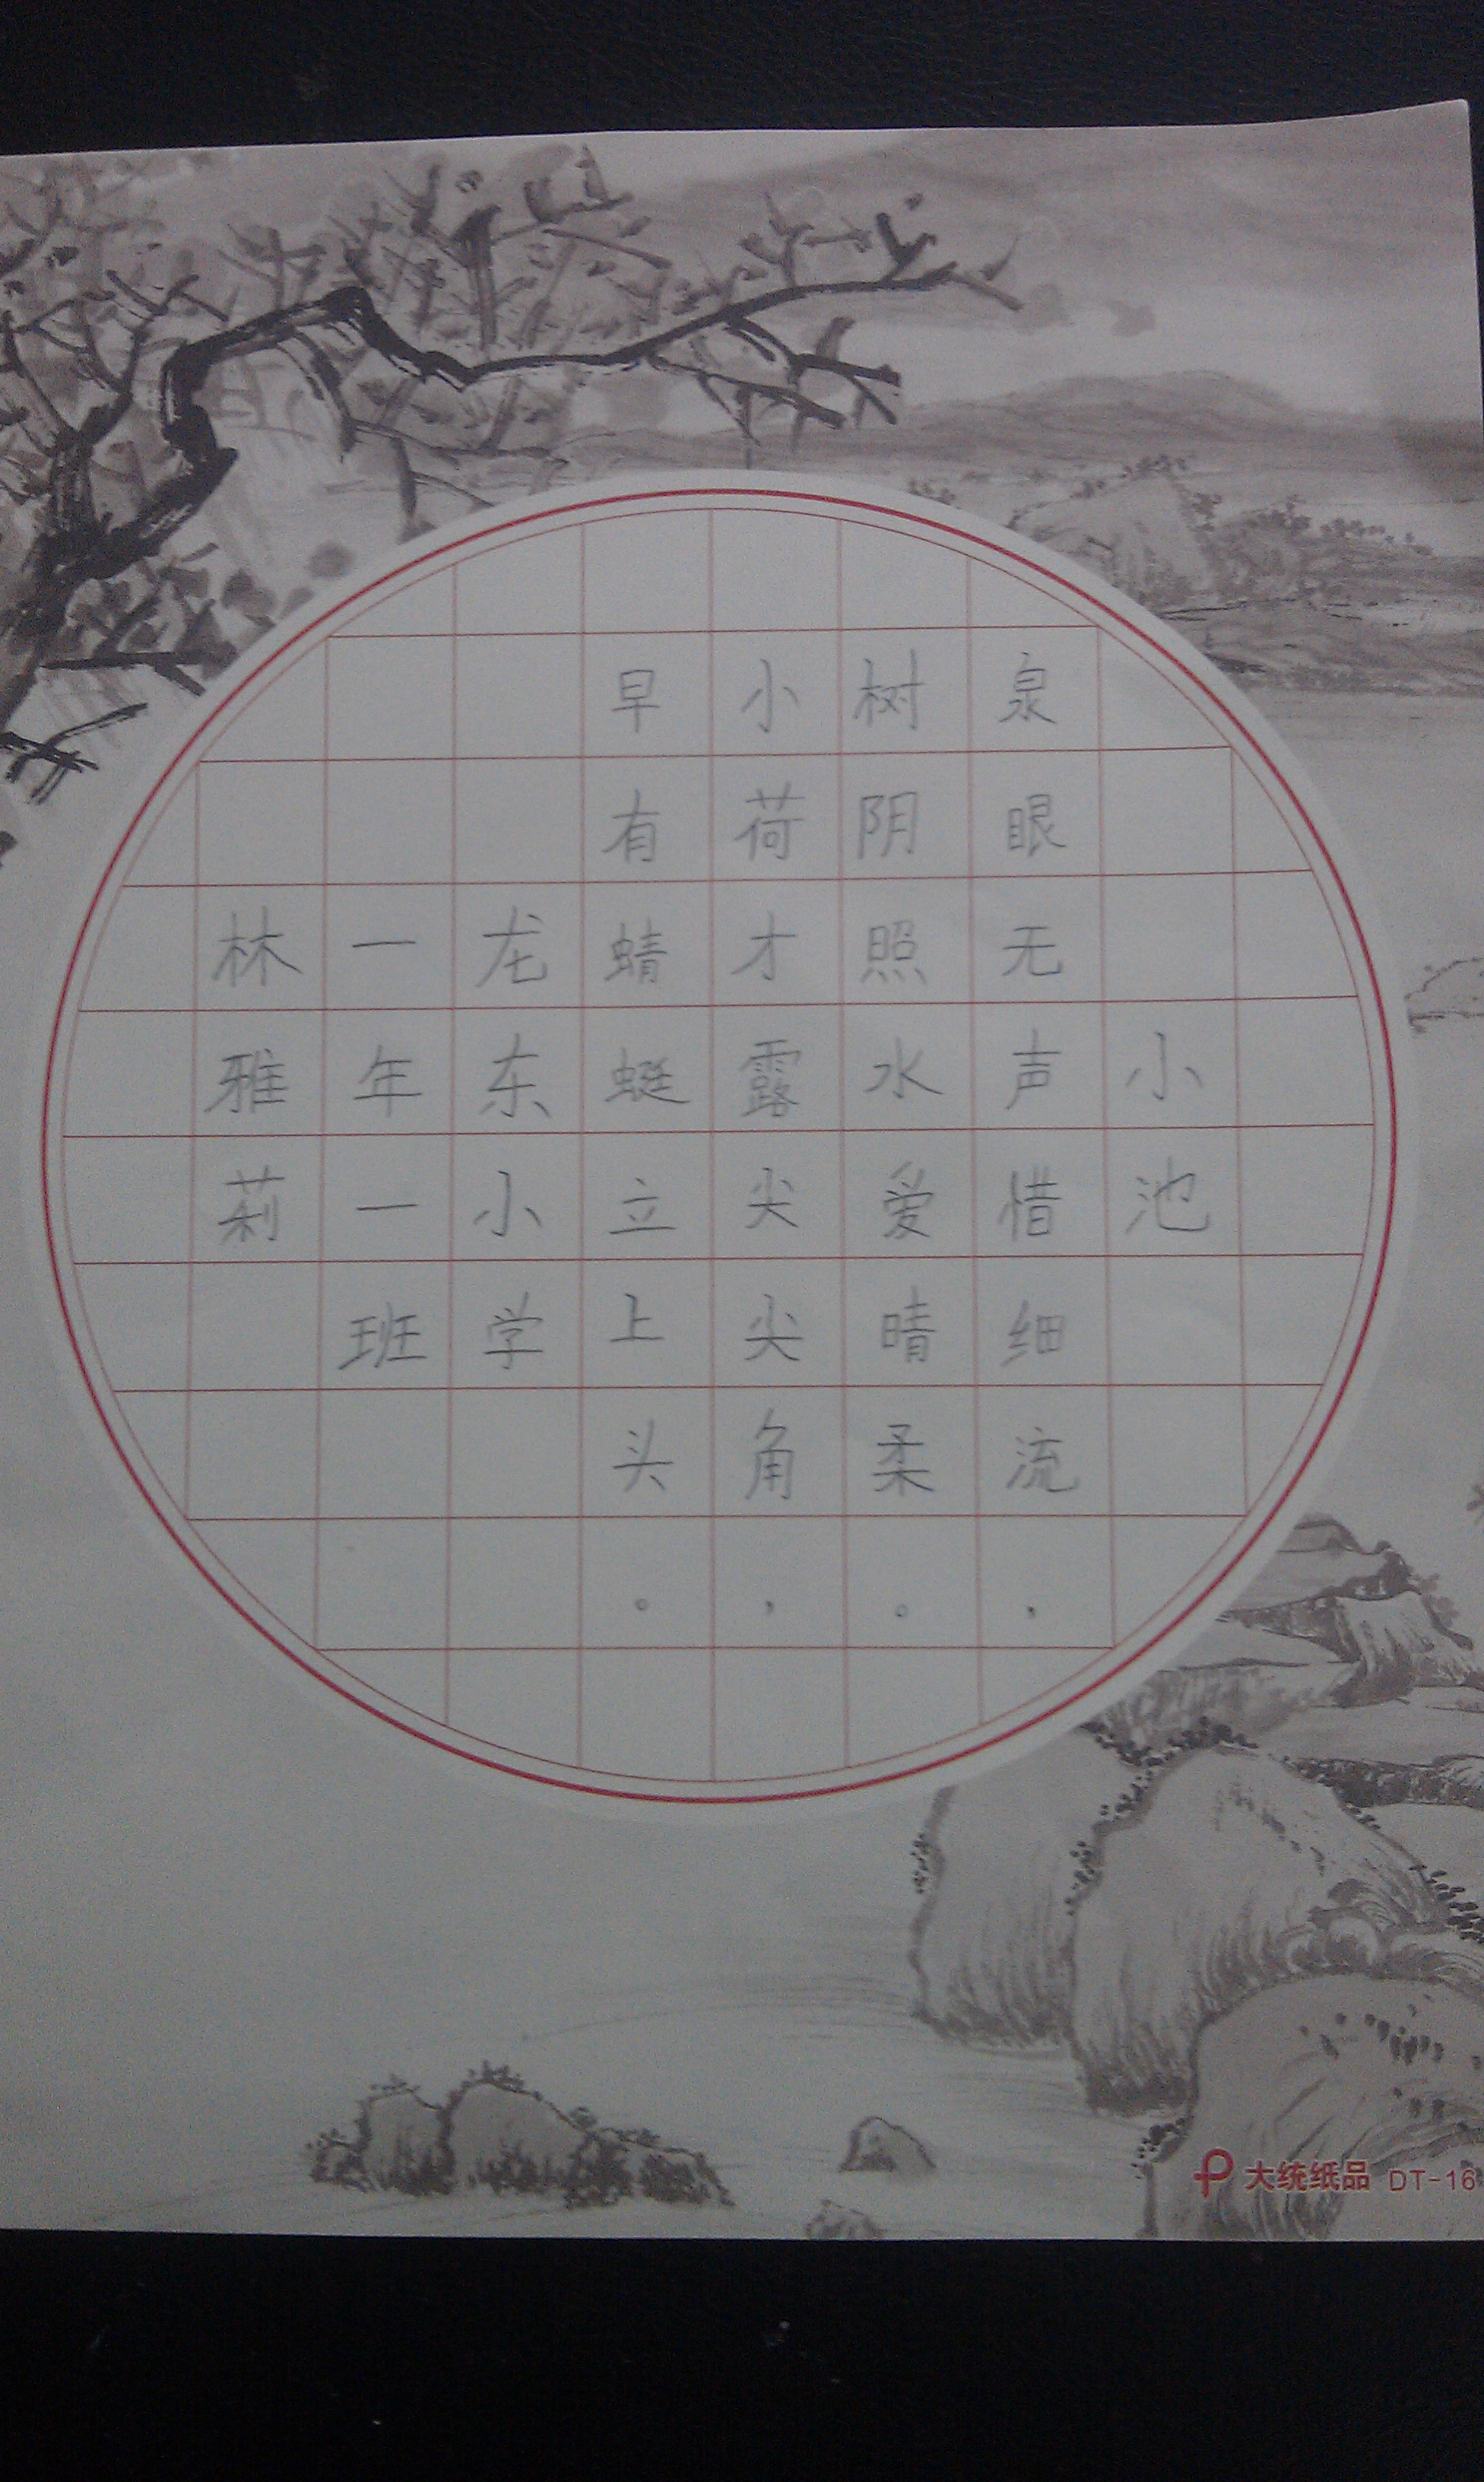 小池
泉眼无声惜细流，
树阴照水爱晴柔。
小荷才露尖尖角，
早有蜻蜓立上头。
龙东小学
一年一班
林雅莉
大统纸品 DT-16